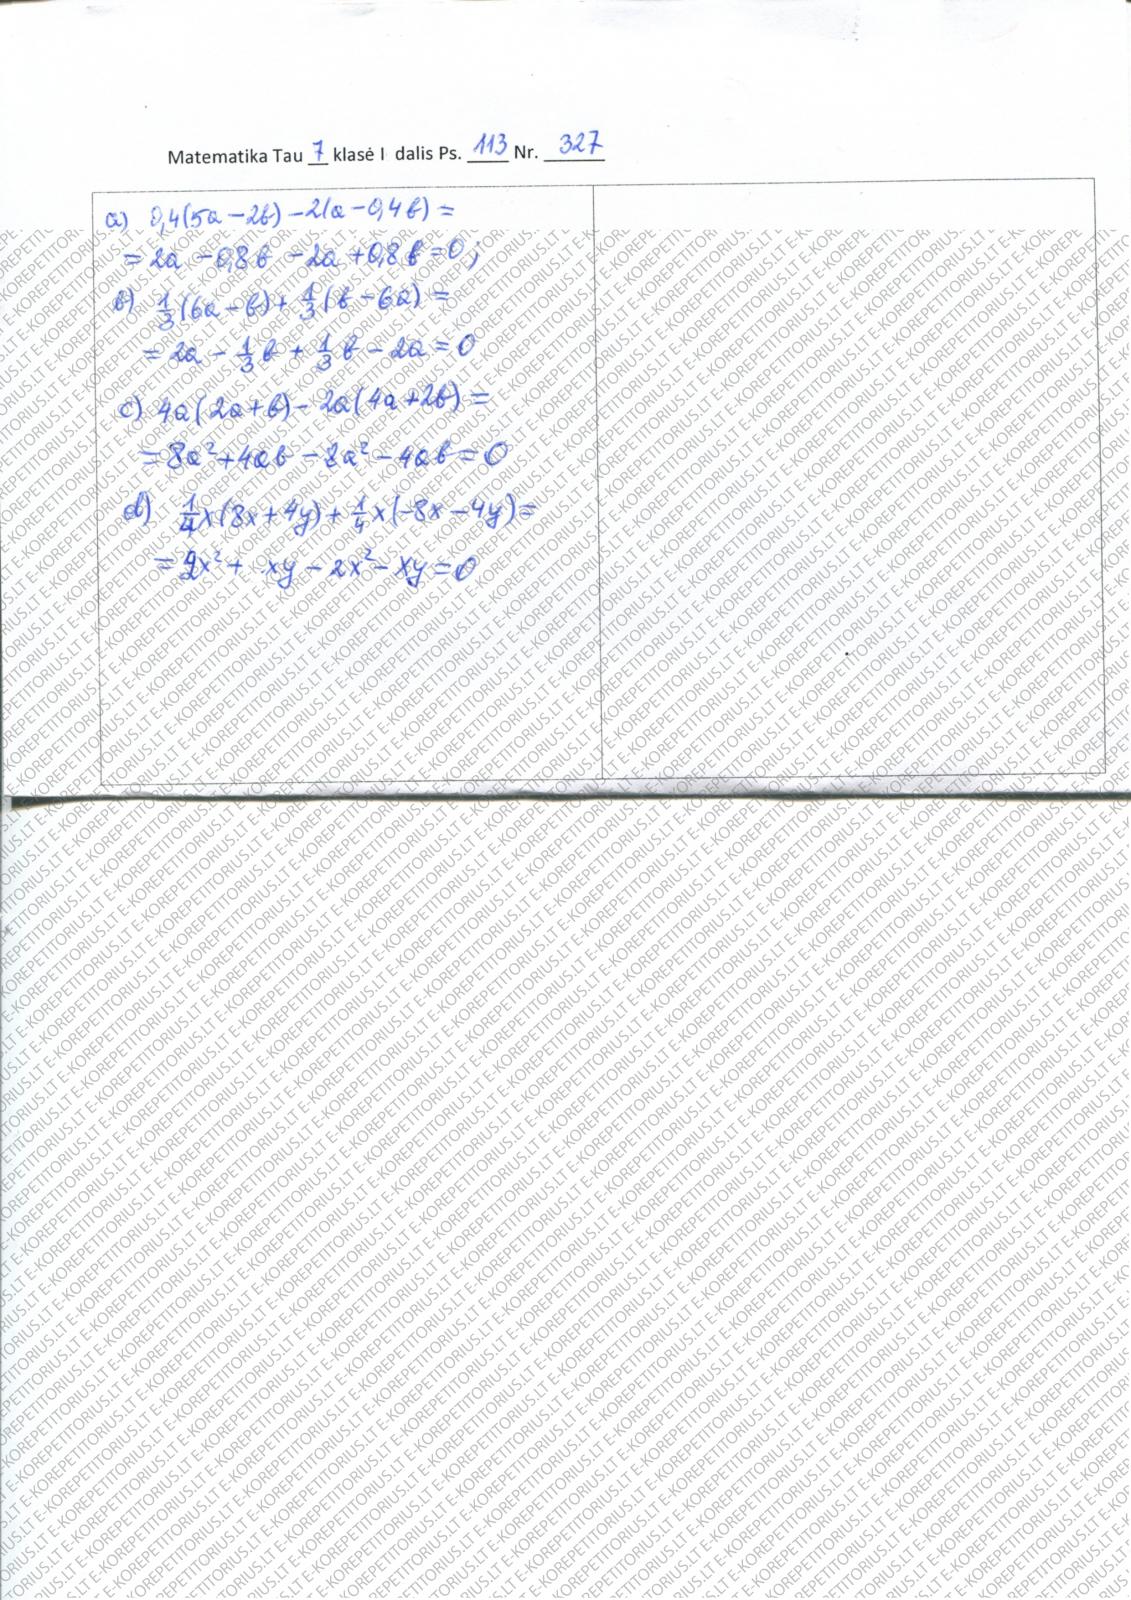 Matematika Tau 7 klasė I dalis Ps. 113 Nr. 327
a) 0,4(5a-2b)-2(a-0,4b)=
=2a-0,8b-2a+0,8b=0;
b) 1/3(6a-b)+1/3(b-6a)=
=2a-1/3b+1/3b-2a=0
c) 4a(2a+b)-2a(4a+2b)=
=8a²+4ab-8a²-4ab=0
d) 1/4x(8x+4y)+1/4x(-8x-4y)=
=2x²+xy-2x²-xy=0
E-KOREPETITORIUS.LT